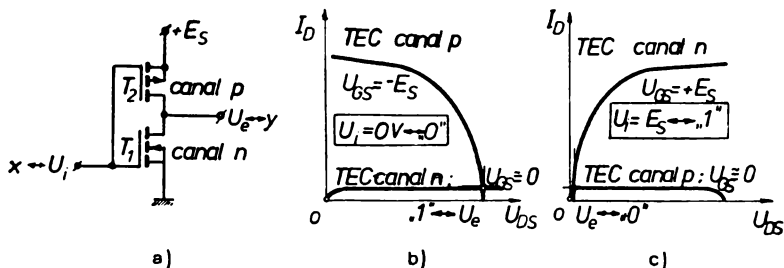 +E_S
T_2
canal p
U_e↔y
T_1
canal n
x↔U_i
a)
I_D
TEC canal p
U_GS=-E_S
U_i=0V↔„0"
TEC canal n; U_GS≅0
0
„1"↔U_e
U_DS
b)
I_D
TEC canal n
U_GS=+E_S
U_i=E_S↔„1"
TEC canal p: U_GS≅0
0
U_e↔„0"
U_DS
c)